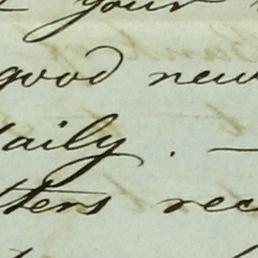 your
good new
aily. —
tters rec